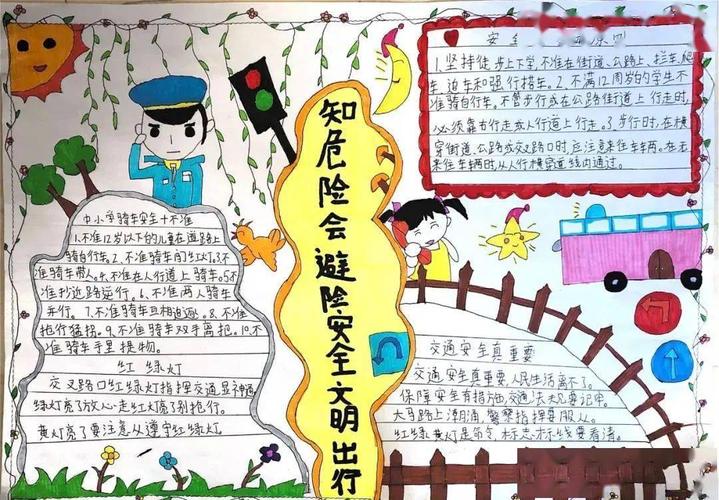 知危险会避险安全文明出行
安全
1.坚持徒步上下学,不准在街道、公路上、拦车、爬
车、追车和强行搭车。2、不满12周岁的学生不
准骑自行车,不管步行或在公路街道上行走时,
必须靠右行走或人行道上行走。3步行时,在横
穿街道、公路或交叉路口时,应注意来往车辆。在无
来往车辆时,从人行横道线内通过。
中小学骑车安全十不准
1.不准12岁以下的儿童在道路上
骑自行车。2、不准骑车闯红灯。3不
准骑车带人。4.不准在人行道上骑车。5不
准抄近路逆行。6、不准两人骑车
并行。7、不准骑车互相追逐。8、不准
抢行猛拐。9、不准骑车双手离把。10.不
准骑车手里提物。
红绿灯
交叉路口红绿灯指挥交通显神通
绿灯亮了放心走红灯亮了别抢行。
黄灯亮了要注意人遵守红绿灯
交通安全真重要
交通安全真重要,人民生活离不了。
保障安全有措施交通法夫凡要记牢。
大马路上潮涌警察指挥要服从。
红绿黄灯是命令,标志标线要看清。